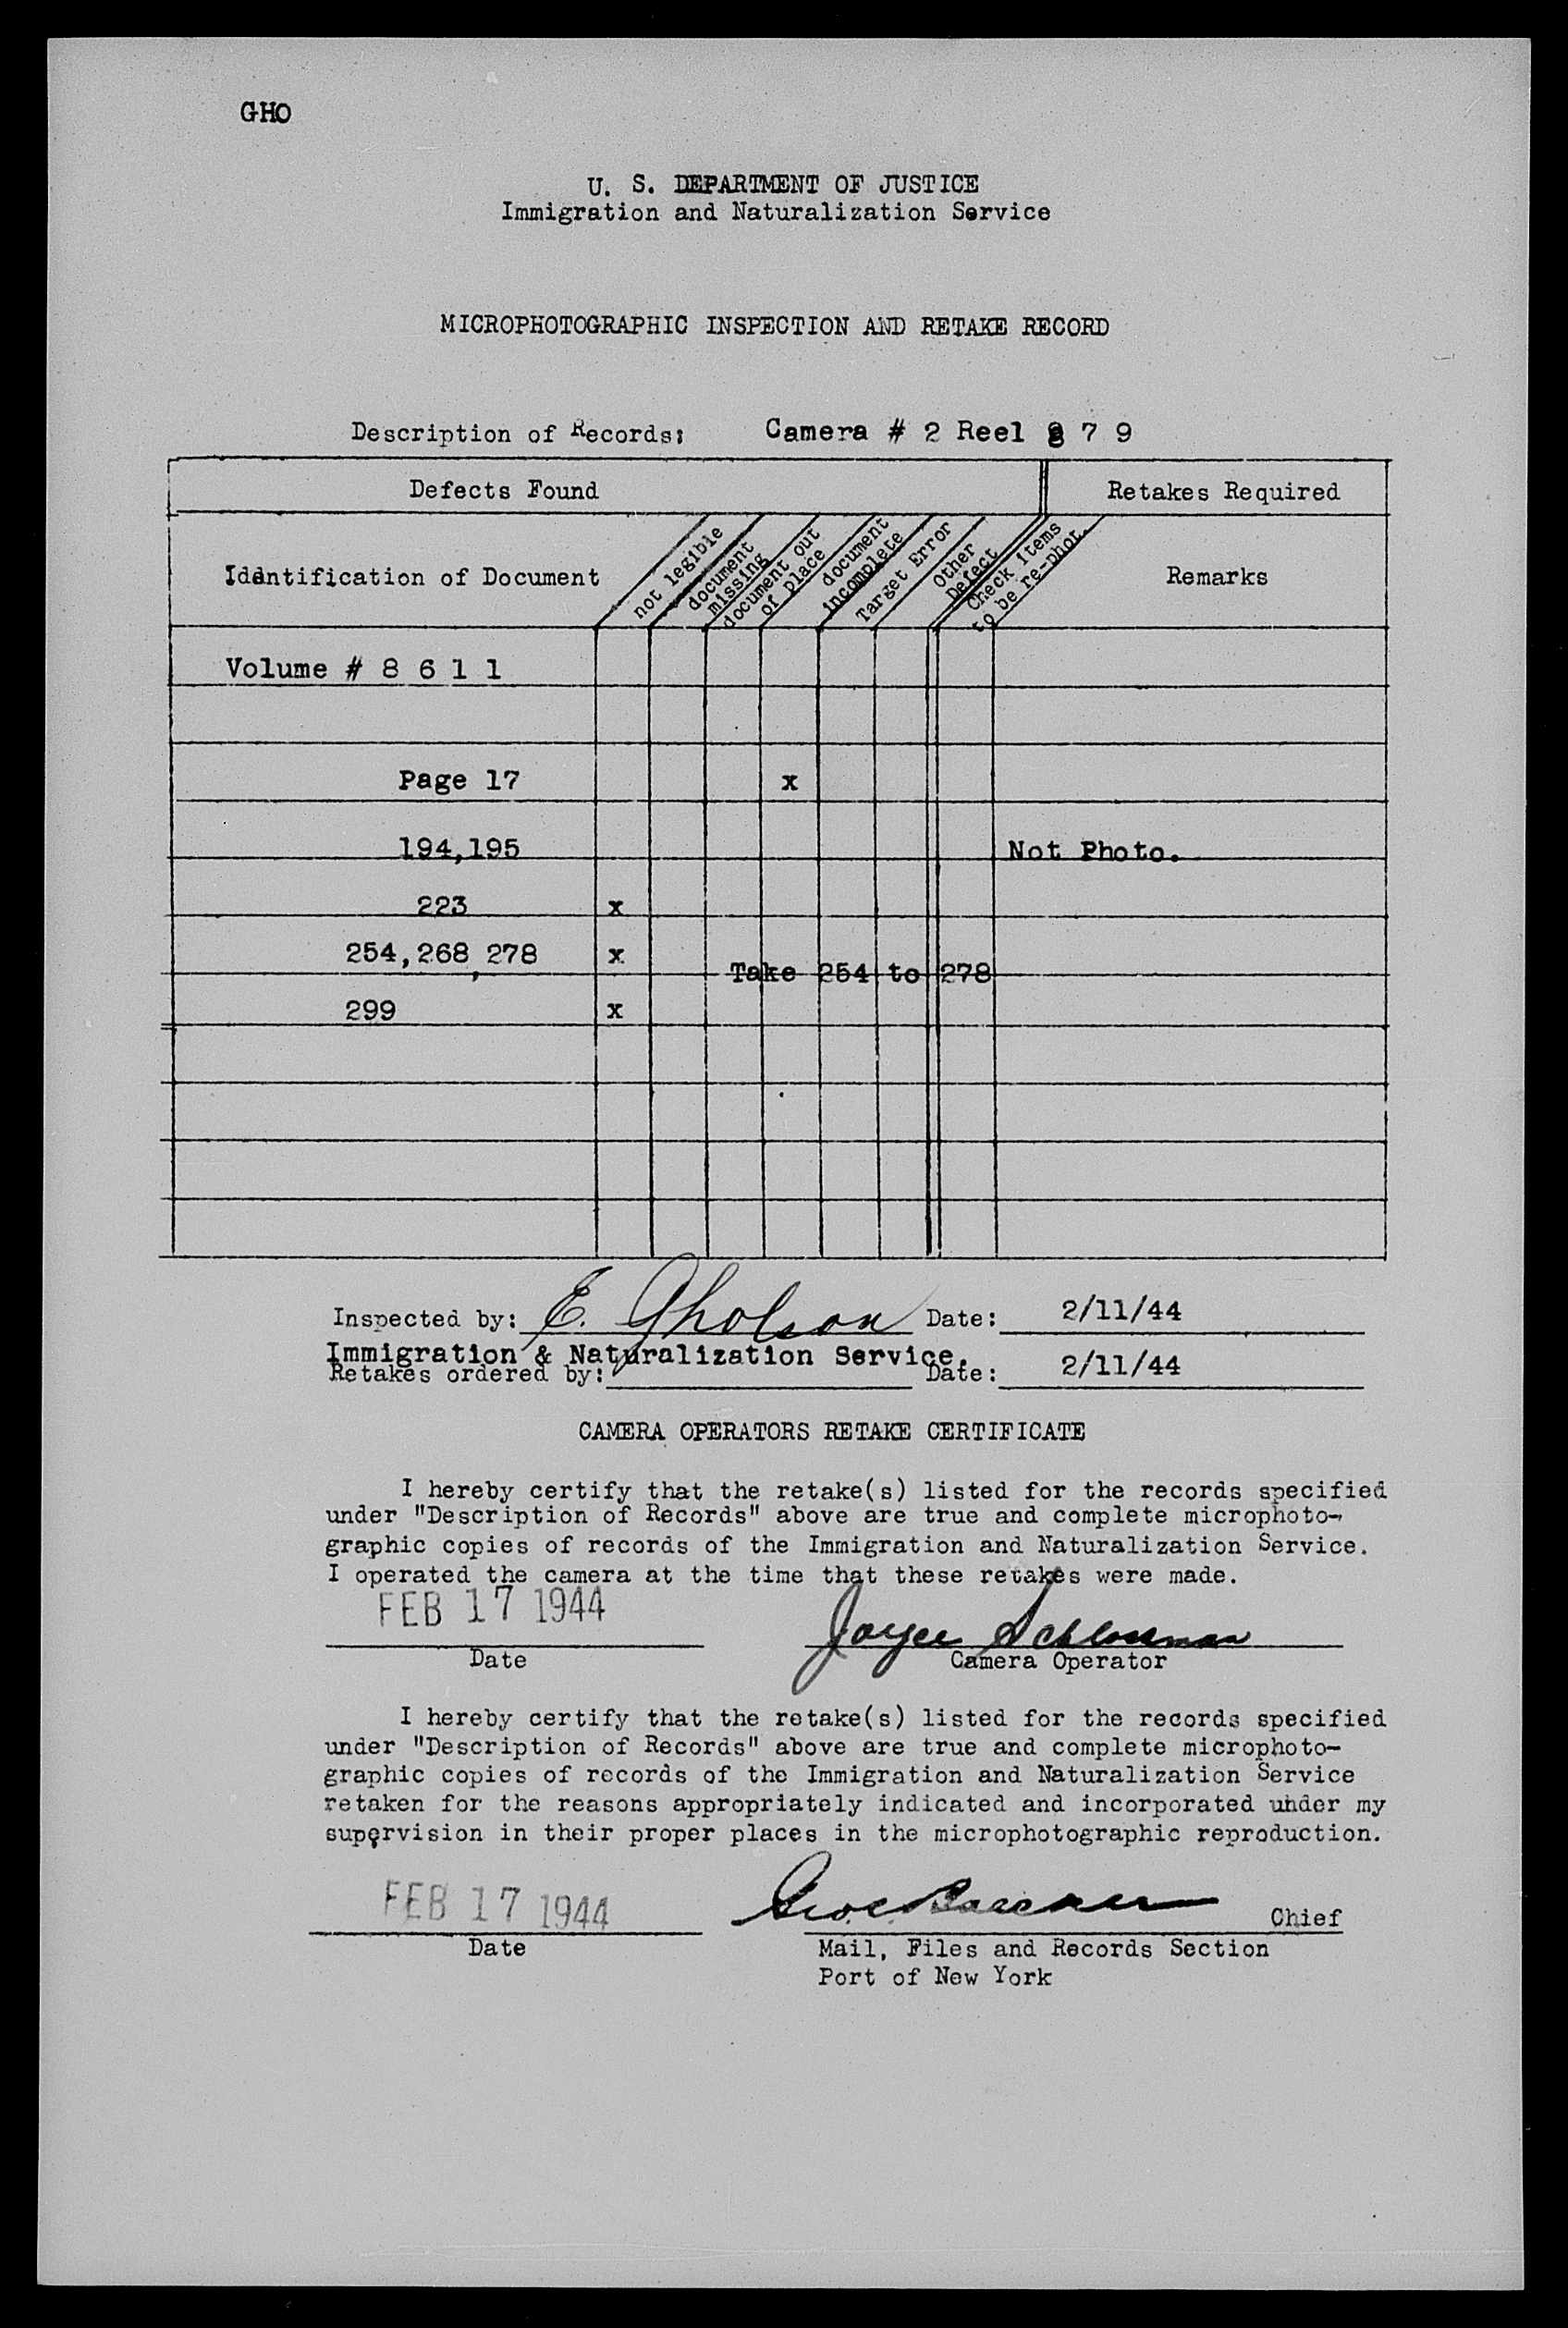 GHO
U. S. DEPARTMENT OF JUSTICE
Immigration and Naturalization Service
MICROPHOTOGRAPHIC INSPECTION AND RETAKE RECORD
Description of Records: Camera # 2 Reel 8 7 9
Defects Found Retakes Required
Idantification of Document not legible document missing document out of place document incomplete Target Error Other Defect Check items to be re-phot. Remarks
Volume # 8 6 1 1
Page 17 x
194,195 Not Photo.
223 x
254,268,278 x Take 254 to 278
299 x
Inspected by: E. Gholson Date: 2/11/44
Immigration & Naturalization Service.
Retakes ordered by: Date: 2/11/44
CAMERA OPERATORS RETAKE CERTIFICATE
I hereby certify that the retake(s) listed for the records specified
under "Description of Records" above are true and complete microphoto-
graphic copies of records of the Immigration and Naturalization Service.
I operated the camera at the time that these retakes were made.
FEB 17 1944 Joyce Schlossman
Date Camera Operator
I hereby certify that the retake(s) listed for the records specified
under "Description of Records" above are true and complete microphoto-
graphic copies of records of the Immigration and Naturalization Service
retaken for the reasons appropriately indicated and incorporated under my
supervision in their proper places in the microphotographic reproduction.
FEB 17 1944 Chief
Date Mail, Files and Records Section
Port of New York